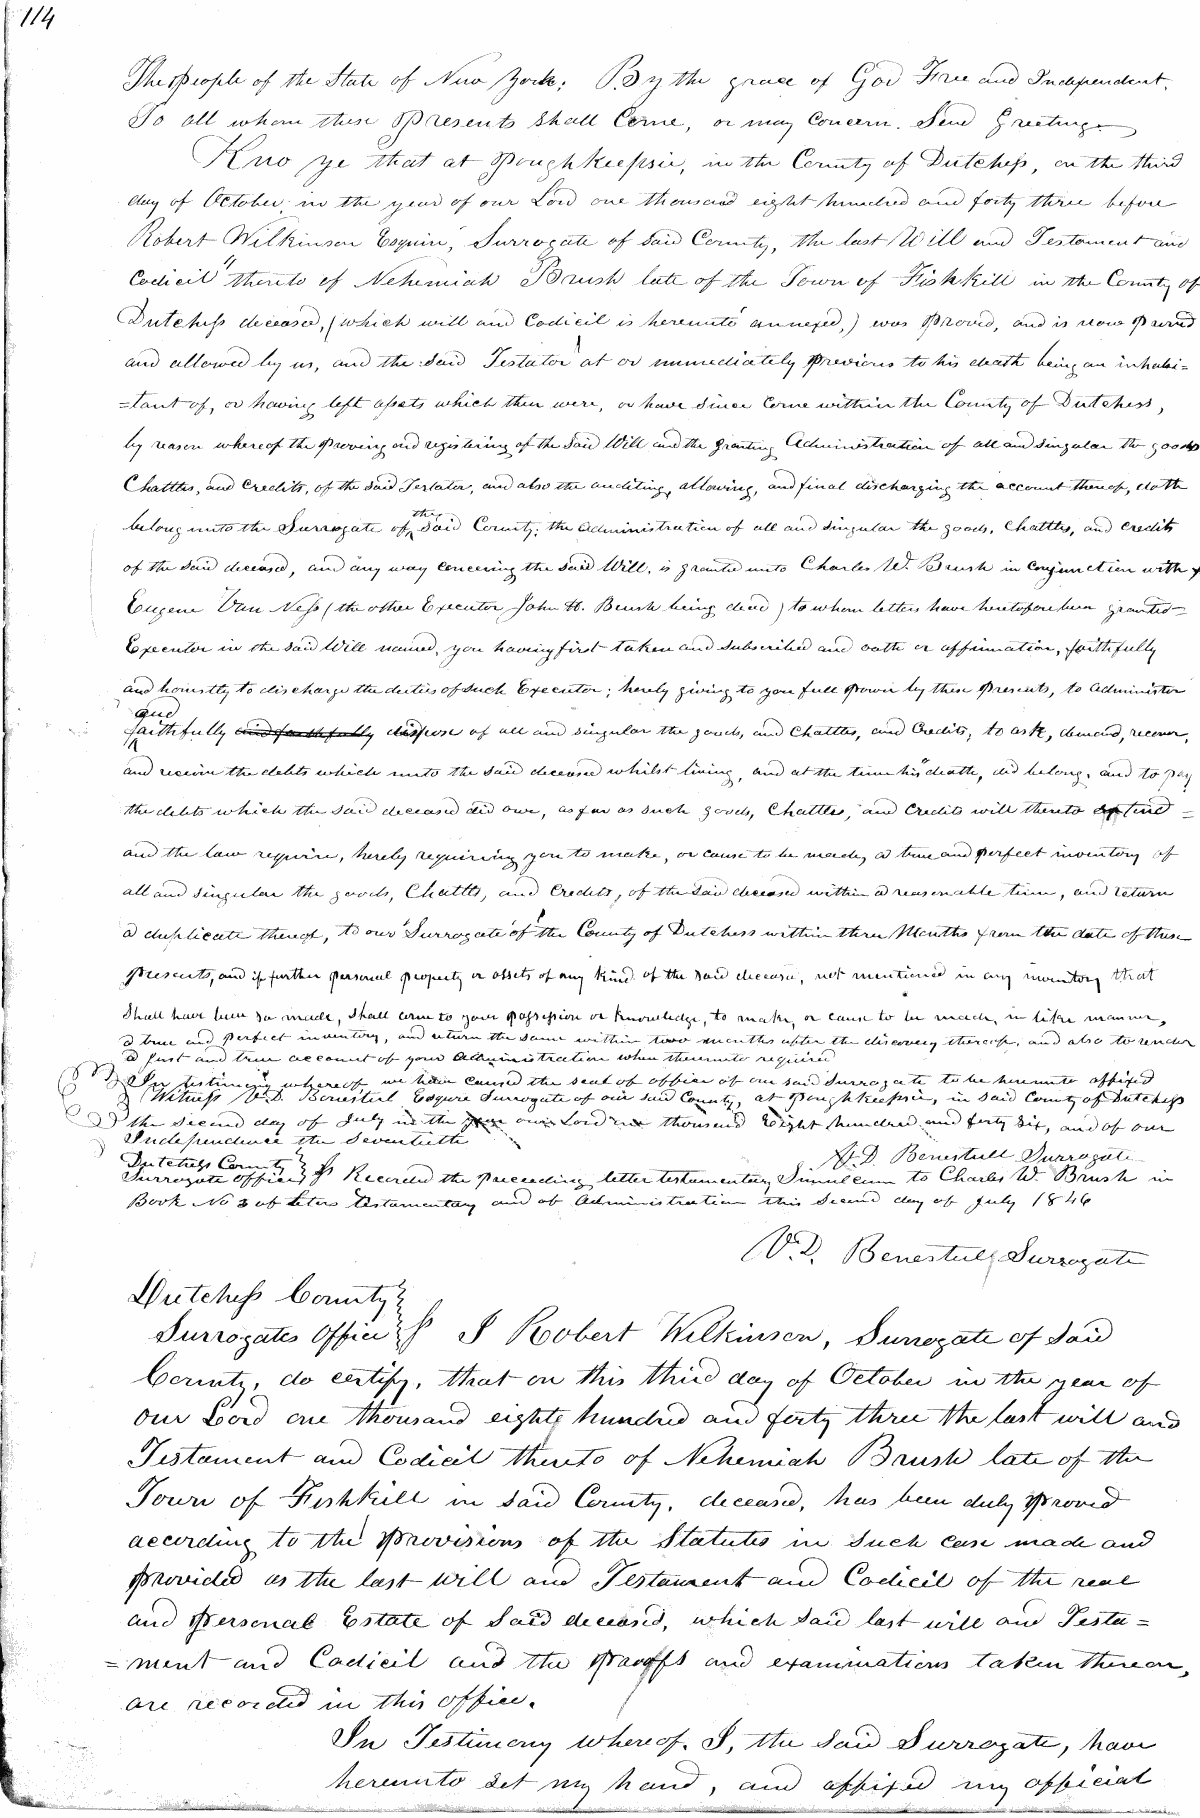 114
The People of the State of New York: By the grace of God Free and Independent.
To all whom these Presents shall Come, or may Concern. Send Greeting
Kno ye that at Poughkeepsie, in the County of Dutchess, on the third
day of October, in the year of our Lord one thousand eight hundred and forty three before
Robert Wilkinson Esquire, Surrogate of said County, the last Will and Testament and
Codicil thereto of Nehemiah Brush late of the Town of Fishkill in the County of
Dutchess deceased, (which will and Codicil is hereunto annexed,) was Proved, and is now Proved
and allowed by us, and the said Testator at or immediately previous to his death being an inhabi=
=tant of, or having left assets which then were, or have since Come within the County of Dutchess,
by reason whereof the Proving and registering of the said Will and the granting Administration of all and singular the goods
Chattles, and Credits, of the said Testator, and also the auditing, allowing, and final discharging the account thereof, doth
belong unto the Surrogate of the said County; the Administration of all and singular the goods, Chattles, and Credits
of the said deceased, and any way concering the said Will, is granted unto Charles W. Brush in conjunction with
Eugene Van Ness (the other Executor John H. Brush being dead) to whom letters have heretofore been granted
Executor in the said Will named, you having first taken and subscribed and oath or affirmation, faithfully
and honestly to discharge the duties of such Executor; hereby giving to you full Power by these Presents, to Administer
and
faithfully and faithfully dispose of all and singular the goods, and Chattles, and Credits; to ask, demand, recover,
and receive the debts which unto the said deceased whilst living, and at the time his death, did belong, and to pay
the debts which the said deceased did owe, as far as such goods, Chattles, and Credits will thereto extend =
and the law require, hereby requiring you to make, or cause to be made, a true and perfect inventory of
all and singular the goods, Chattles, and Credits, of the said deceased within a reasonable time, and return
a duplicate thereof, to our Surrogate of the County of Dutchess within three Months from the date of these
presents, and if further personal property or assets of any kind of the said deceased, not mentioned in any inventory that
shall have been so made, shall come to your possession or knowledge, to make, or cause to be made, in like manner,
a true and perfect inventory, and return the same within two months after the discovery thereof, and also to render
a just and true account of your Administration when thereunto required
In testimony whereof, we have caused the seal of office of our said Surrogate to be hereunto affixed
Witness V. D. Bonesteel Esqire Surrogate of our said County, at Poughkeepsie, in said County of Dutchess
the second day of July in the year our Lord one thousand Eight hundred and forty six, and of our
Independence the seventieth
V. D. Bonesteel Surrogate
Dutchess County
Surrogate office } ss Recorded the preceeding letter testamentary to Charles W. Brush in
Book No 3 of leters testamentary and of Administration this second day of July 1846
V. D. Bonesteel Surrogate
Dutchess County
Surrogates Office } ss I Robert Wilkinson, Surrogate of said
County, do certify, that on this third day of October in the year of
our Lord one thousand eight hundred and forty three the last will and
Testament and Codicil thereto of Nehemiah Brush late of the
Town of Fishkill in said County, deceased, has been duly Proved
according to the Provisions of the Statutes in such case made and
provided as the last will and Testament and Codicil of the real
and Personal Estate of said deceased, which said last will and Testa=
=ment and Codicil and the Proofs and examinations taken thereon,
are recorded in this office.
In Testimony whereof, I, the said Surrogate, have
hereunto set my hand, and affixed my official